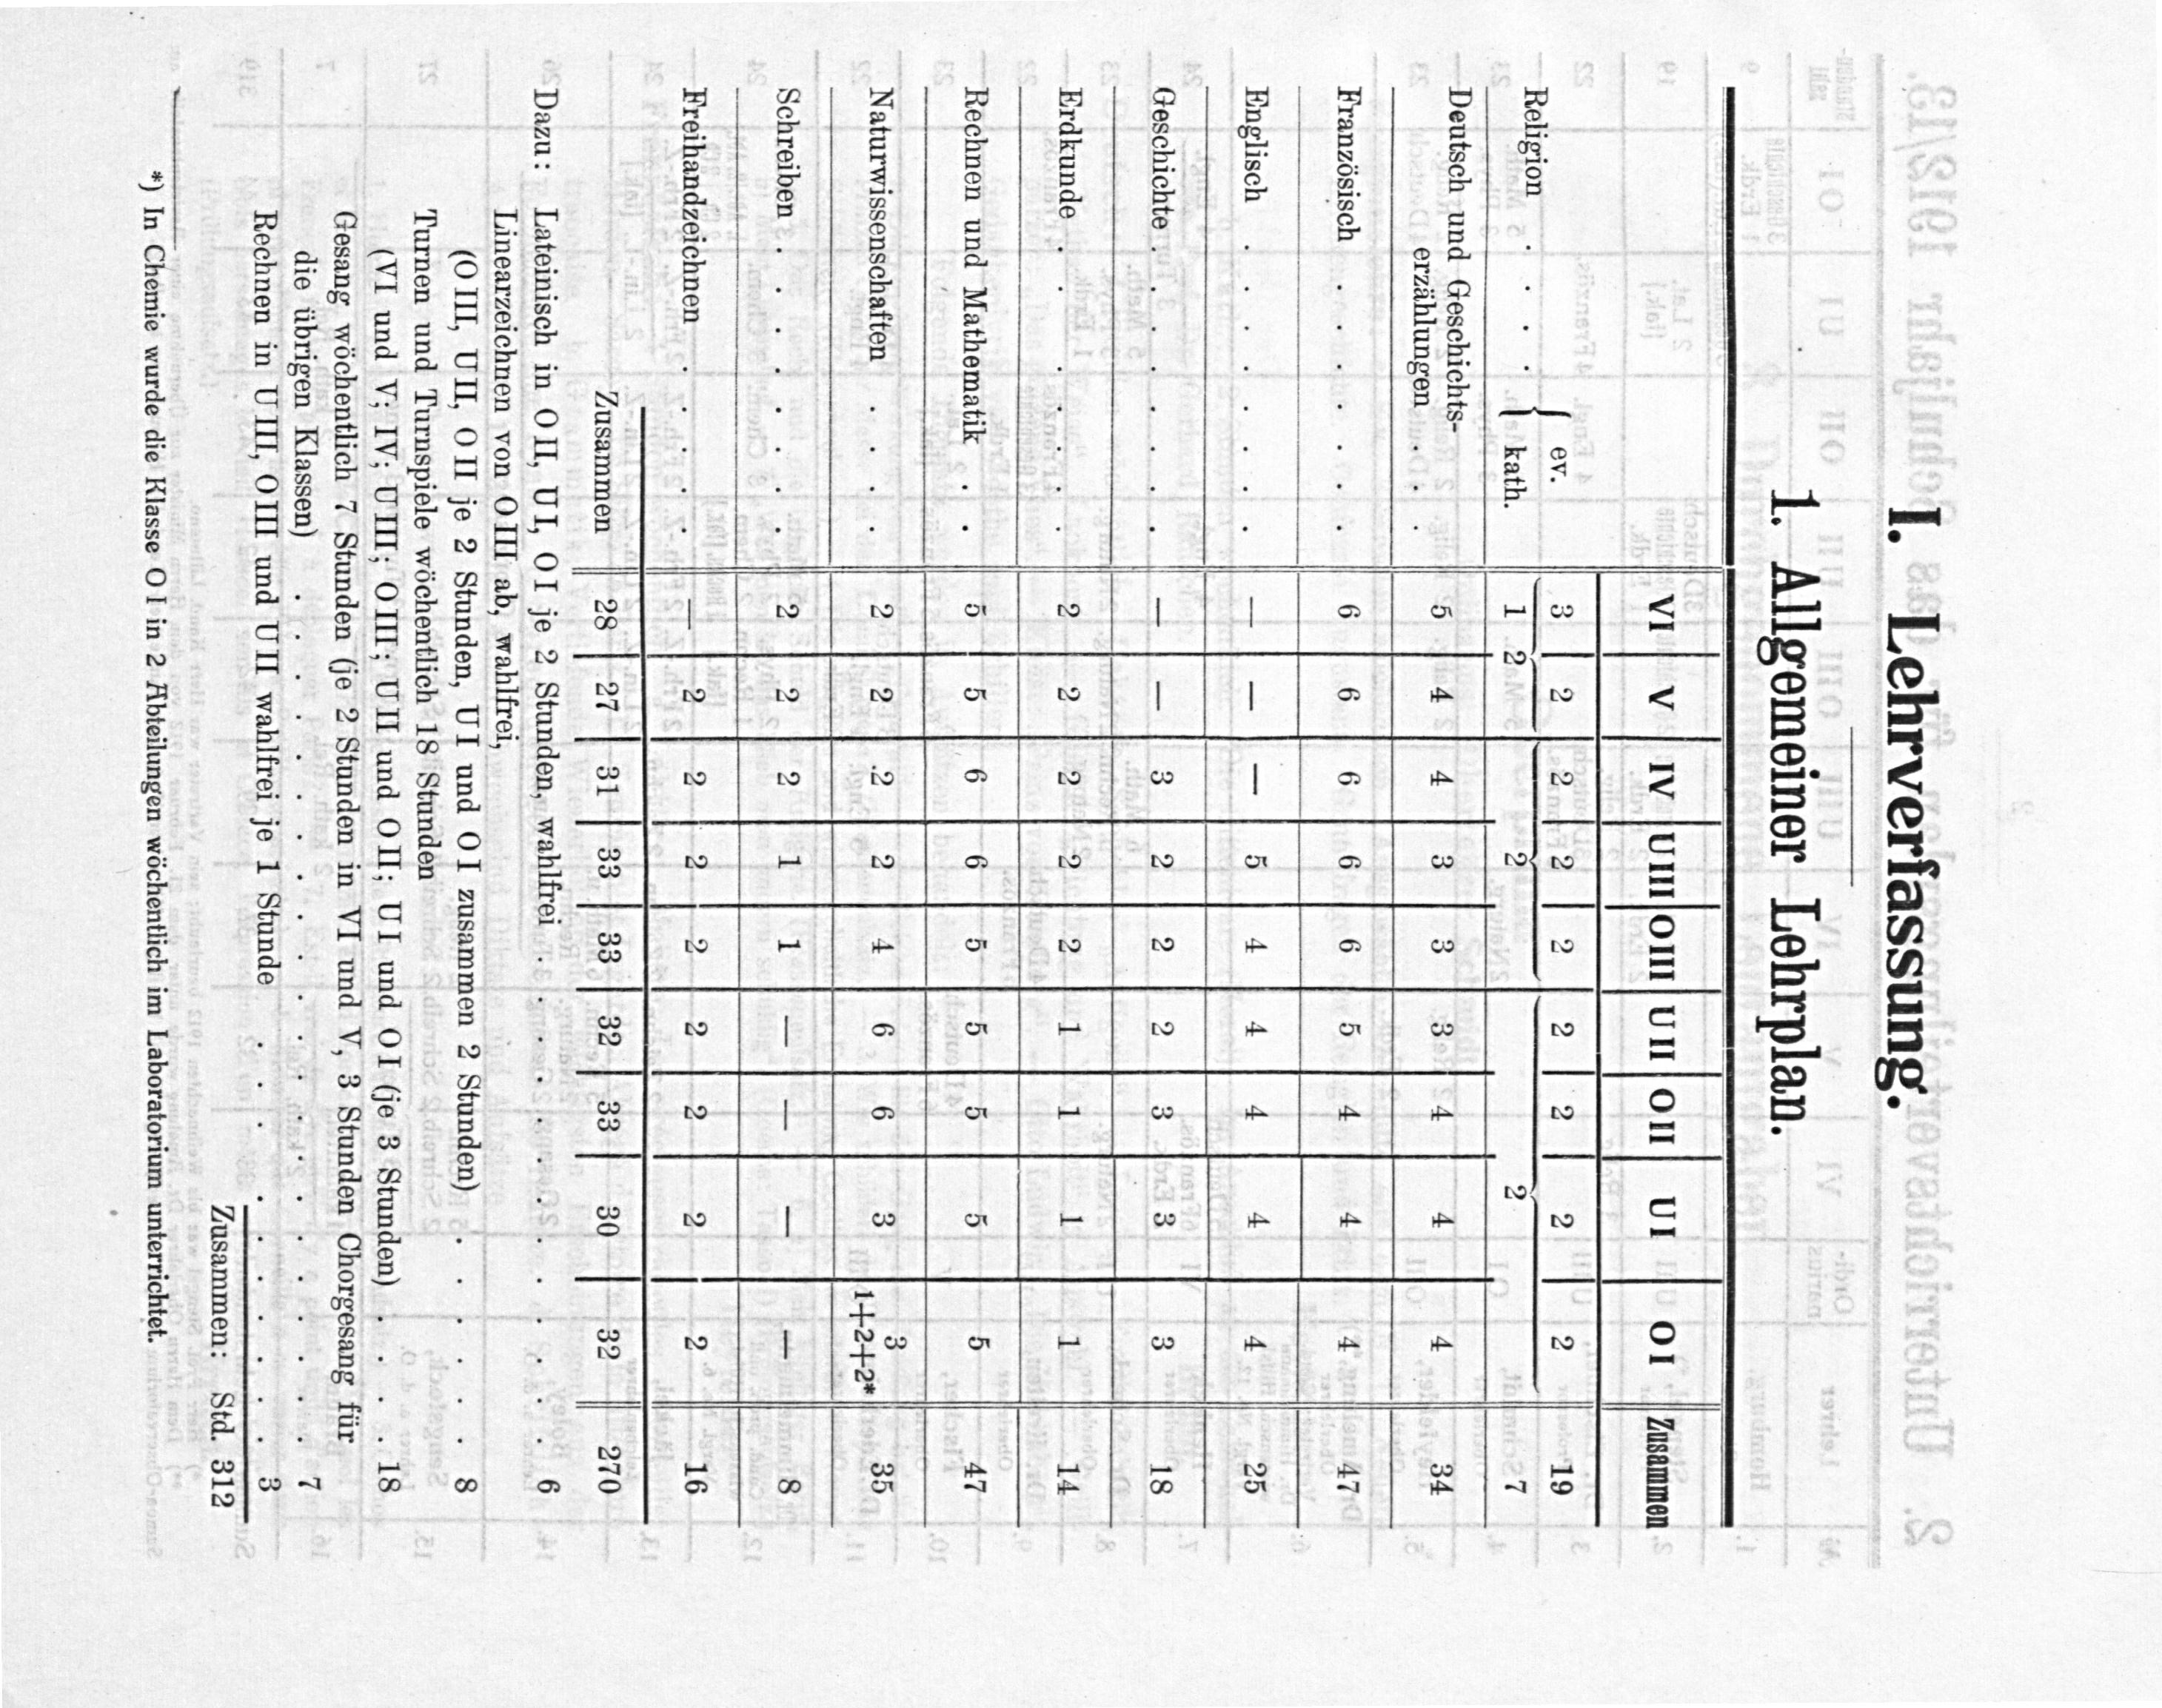 I. Lehrverfassung.
1. Allgemeiner Lehrplan.
VI V IV U III O III U II O II U I O I Zusammen
Religion . . . . { ev. 3 2 2 2 2 2 2 2 2 19
kath. 1 2 2 2 7
Deutsch und Geschichts-
erzählungen . . . 5 4 4 3 3 3 4 4 4 34
Französisch . . . . . . 6 6 6 6 6 5 4 4 4 47
Englisch . . . . . . . — — — 5 4 4 4 4 4 25
Geschichte . . . . . . . — — 3 2 2 2 3 3 3 18
Erdkunde . . . . . . . 2 2 2 2 2 1 1 1 1 14
Rechnen und Mathematik . . 5 5 6 6 5 5 5 5 5 47
Naturwissenschaften . . . . 2 2 2 2 4 6 6 3 3 35
1+2+2*
Schreiben . . . . . . . . 2 2 2 1 1 — — — — 8
Freihandzeichnen . . . . . — 2 2 2 2 2 2 2 2 16
Zusammen 28 27 31 33 33 32 33 30 32 270
Dazu: Lateinisch in O II, U I, O I je 2 Stunden, wahlfrei . . . . . . . . . . . . 6
Linearzeichnen von O III ab, wahlfrei,
(O III, U II, O II je 2 Stunden, U I und O I zusammen 2 Stunden) . . . . . . 8
Turnen und Turnspiele wöchentlich 18 Stunden
(VI und V; IV; U III; O III; U II und O II; U I und O I (je 3 Stunden) . . . . 18
Gesang wöchentlich 7 Stunden (je 2 Stunden in VI und V, 3 Stunden Chorgesang für
die übrigen Klassen) . . . . . . . . . . . . . . . . . 7
Rechnen in U III, O III und U II wahlfrei je 1 Stunde . . . . . . . . . . 3
Zusammen: Std. 312
*) In Chemie wurde die Klasse O I in 2 Abteilungen wöchentlich im Laboratorium unterrichtet.